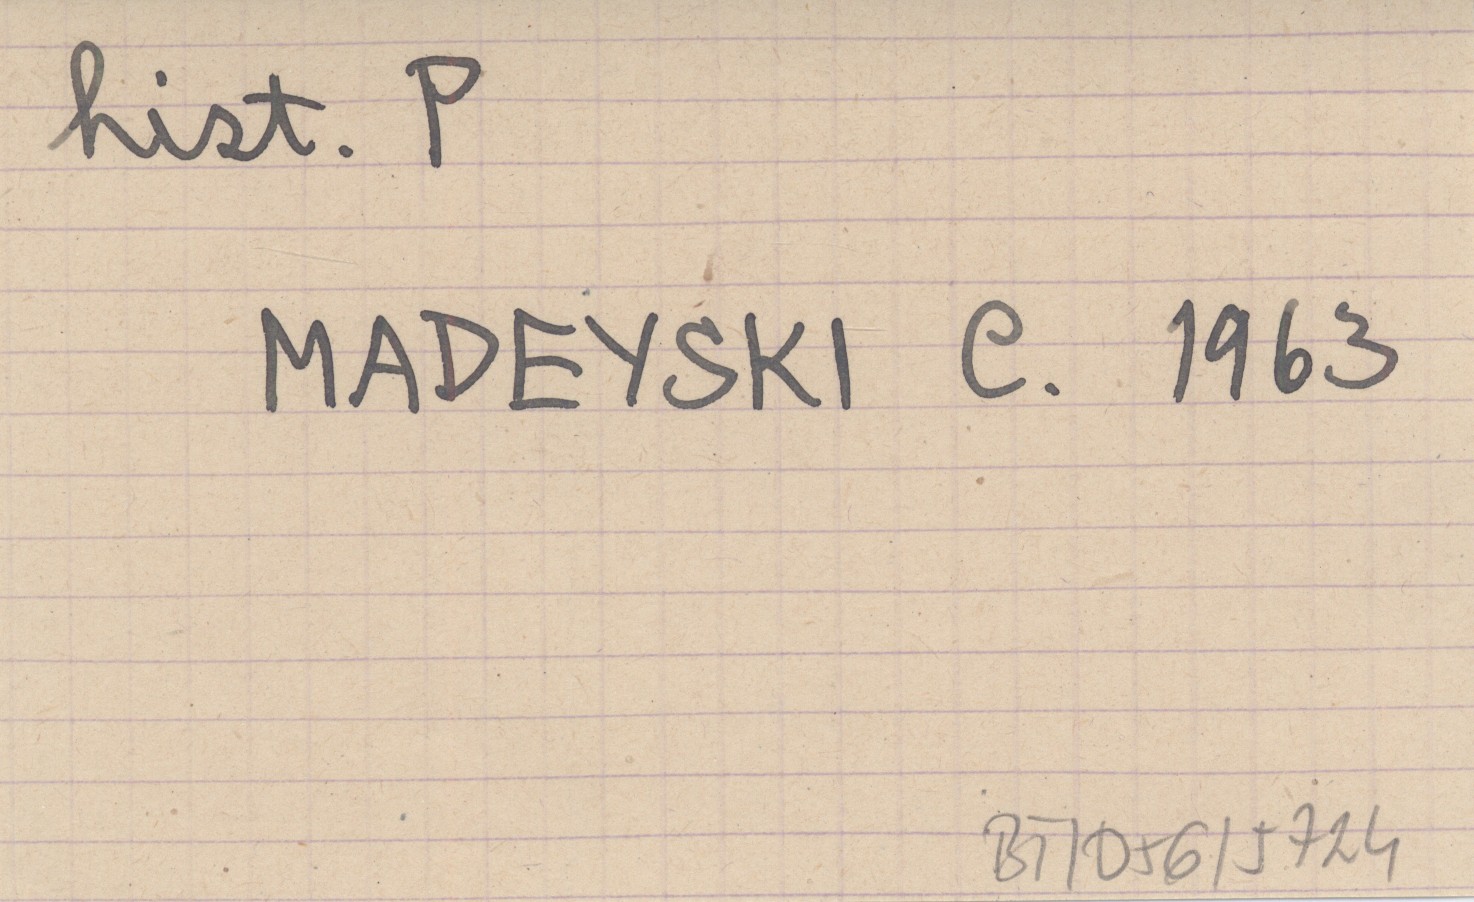 hist. P
MADEYSKI C. 1963
BT/056/5724